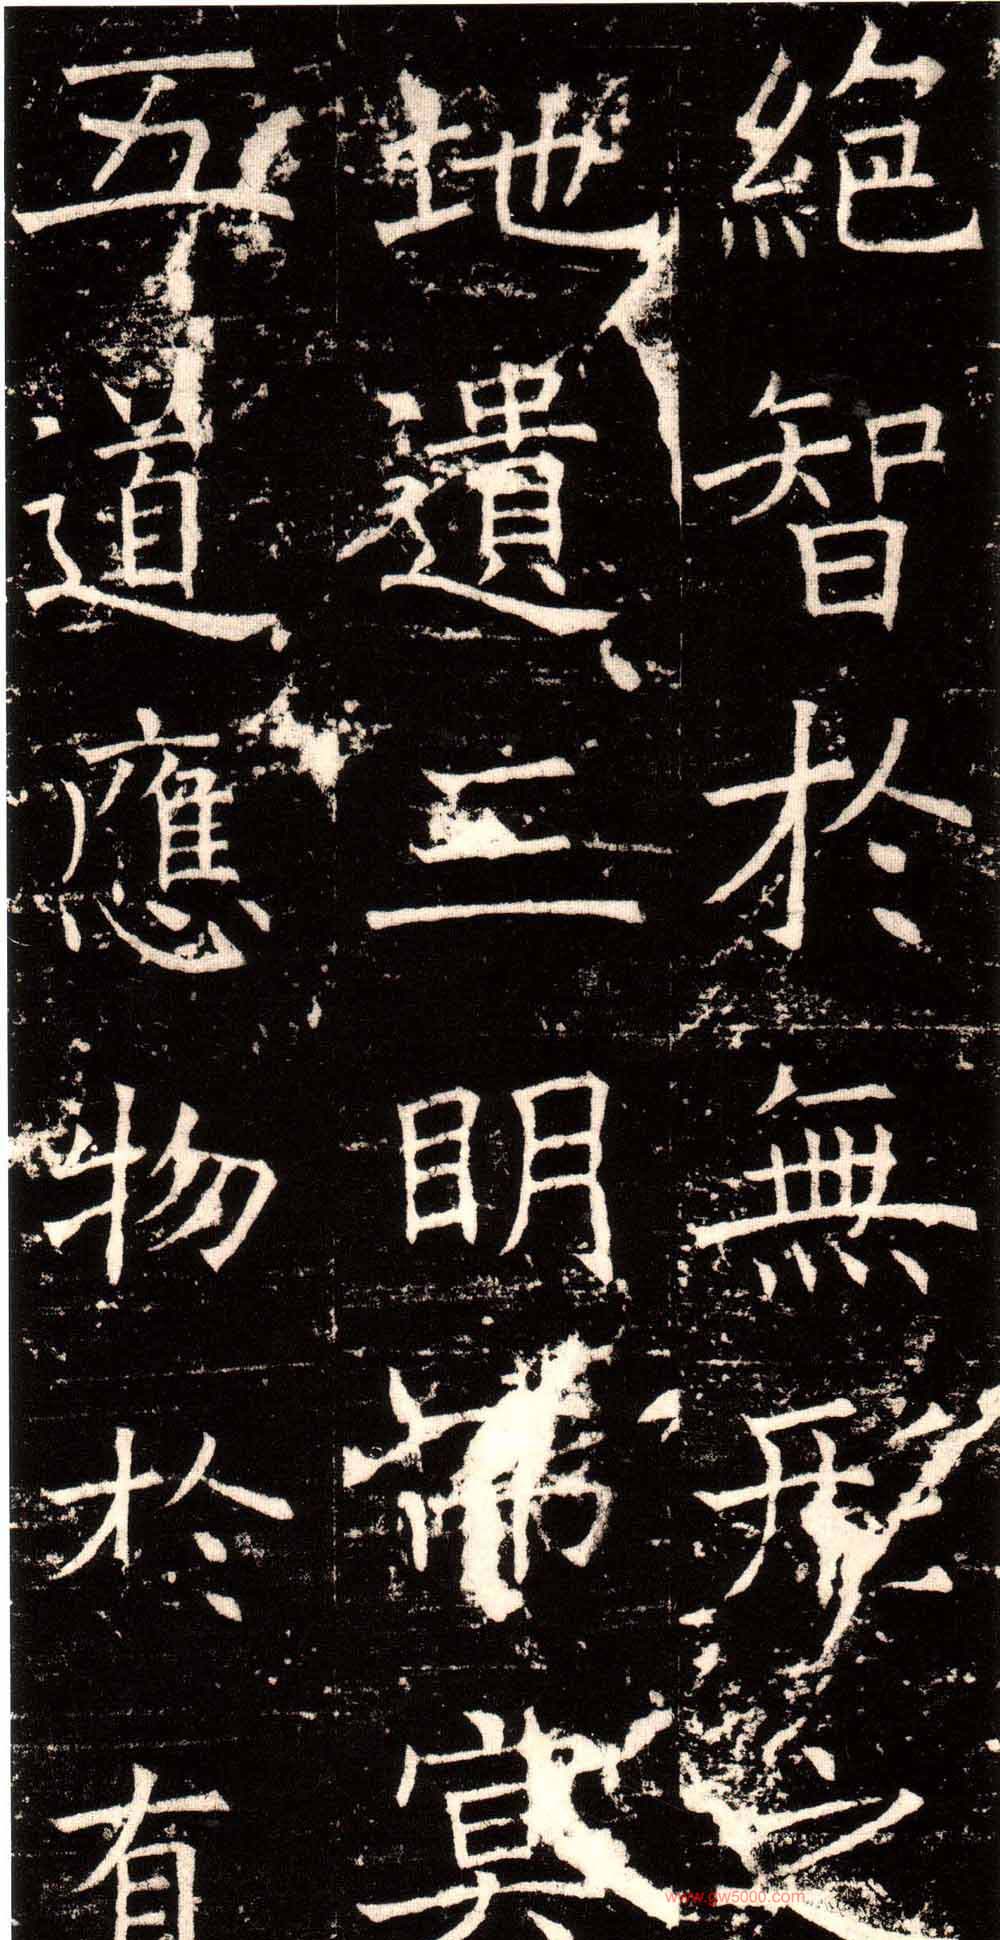 絶智於無形之
地遺三眀冥
五道應物於有
www.gw5000.com